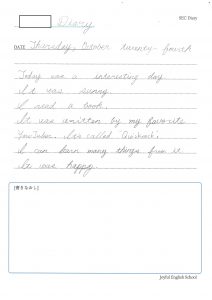 SEC Diary
Diary
DATE Thursday, October twenty-fourth
Today was a interesting day.
It was sunny.
I read a book.
It was written by my favorite
YouTuber. It's called
I can learn many things from it.
It was happy.
Joyful English School